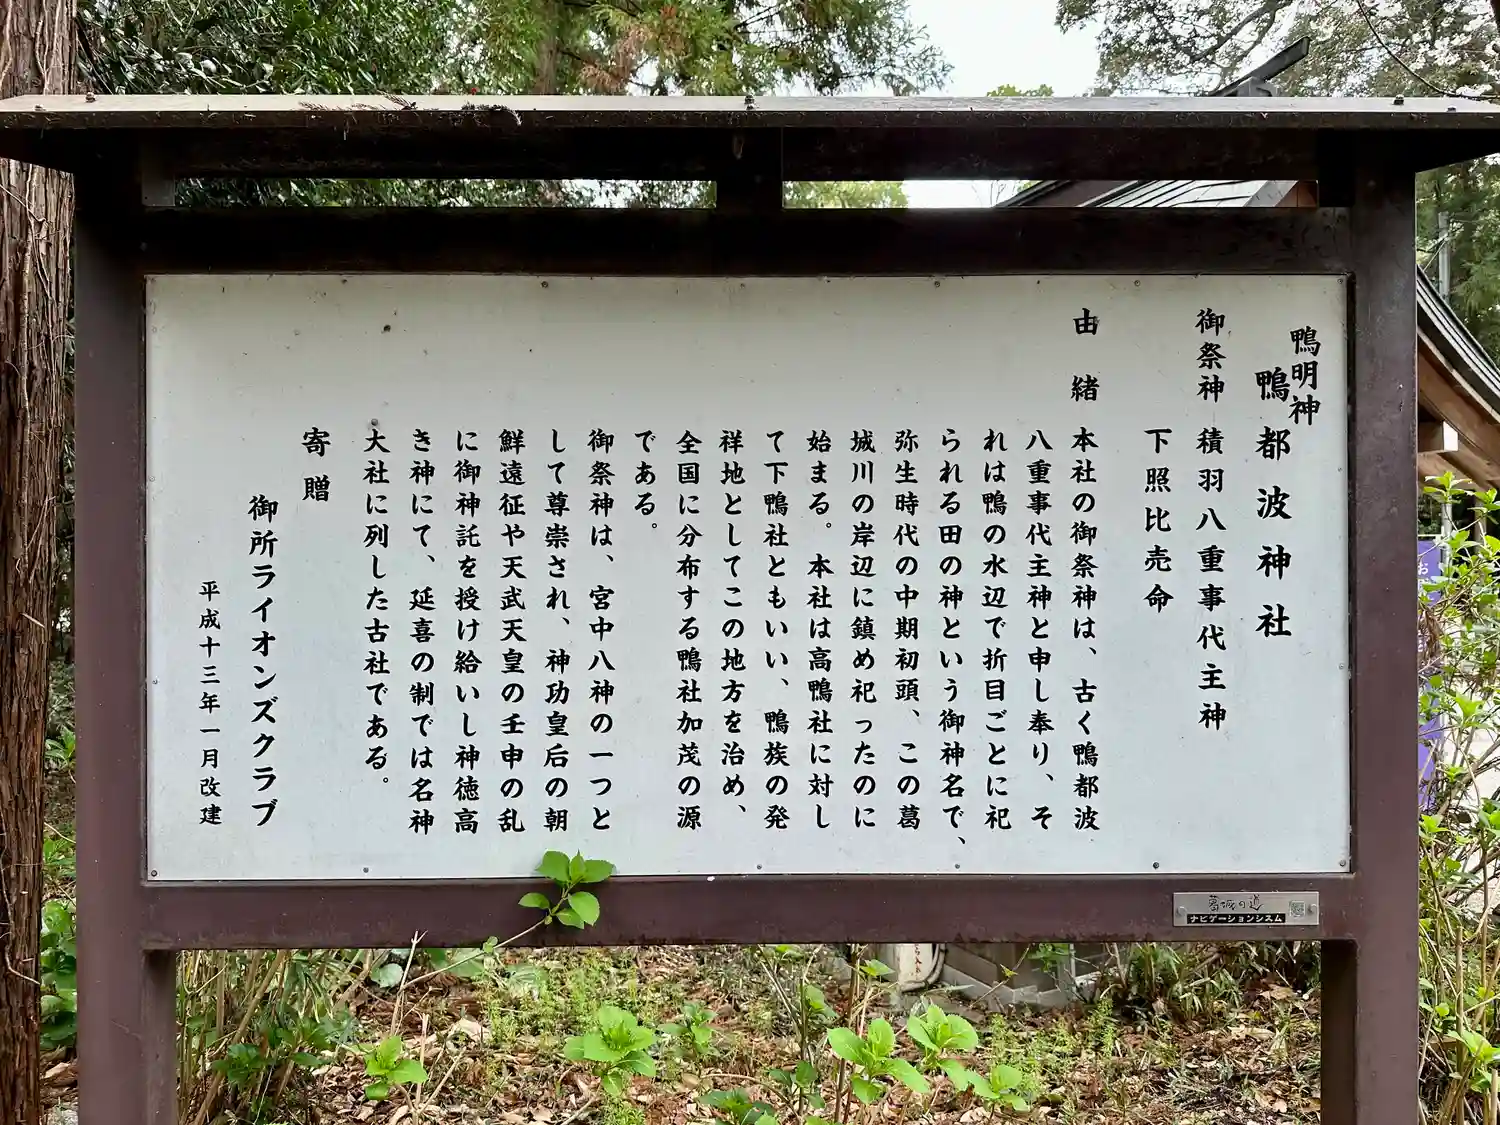 鴨明神
鴨都波神社
御祭神 積羽八重事代主神
下照比売命
由緒 本社の御祭神は、古く鴨都波
八重事代主神と申し奉り、そ
れは鴨の水辺で折目ごとに祀
られる田の神という御神名で、
弥生時代の中期初頭、この葛
城川の岸辺に鎮め祀ったのに
始まる。本社は高鴨社に対し
て下鴨社ともいい、鴨族の発
祥地としてこの地方を治め、
全国に分布する鴨社加茂の源
である。
御祭神は、宮中八神の一つと
して尊崇され、神功皇后の朝
鮮遠征や天武天皇の壬申の乱
に御神託を授け給いし神徳高
き神にて、延喜の制では名神
大社に列した古社である。
寄贈
御所ライオンズクラブ
平成十三年一月改建
葛城の道
ナビゲーションシスム